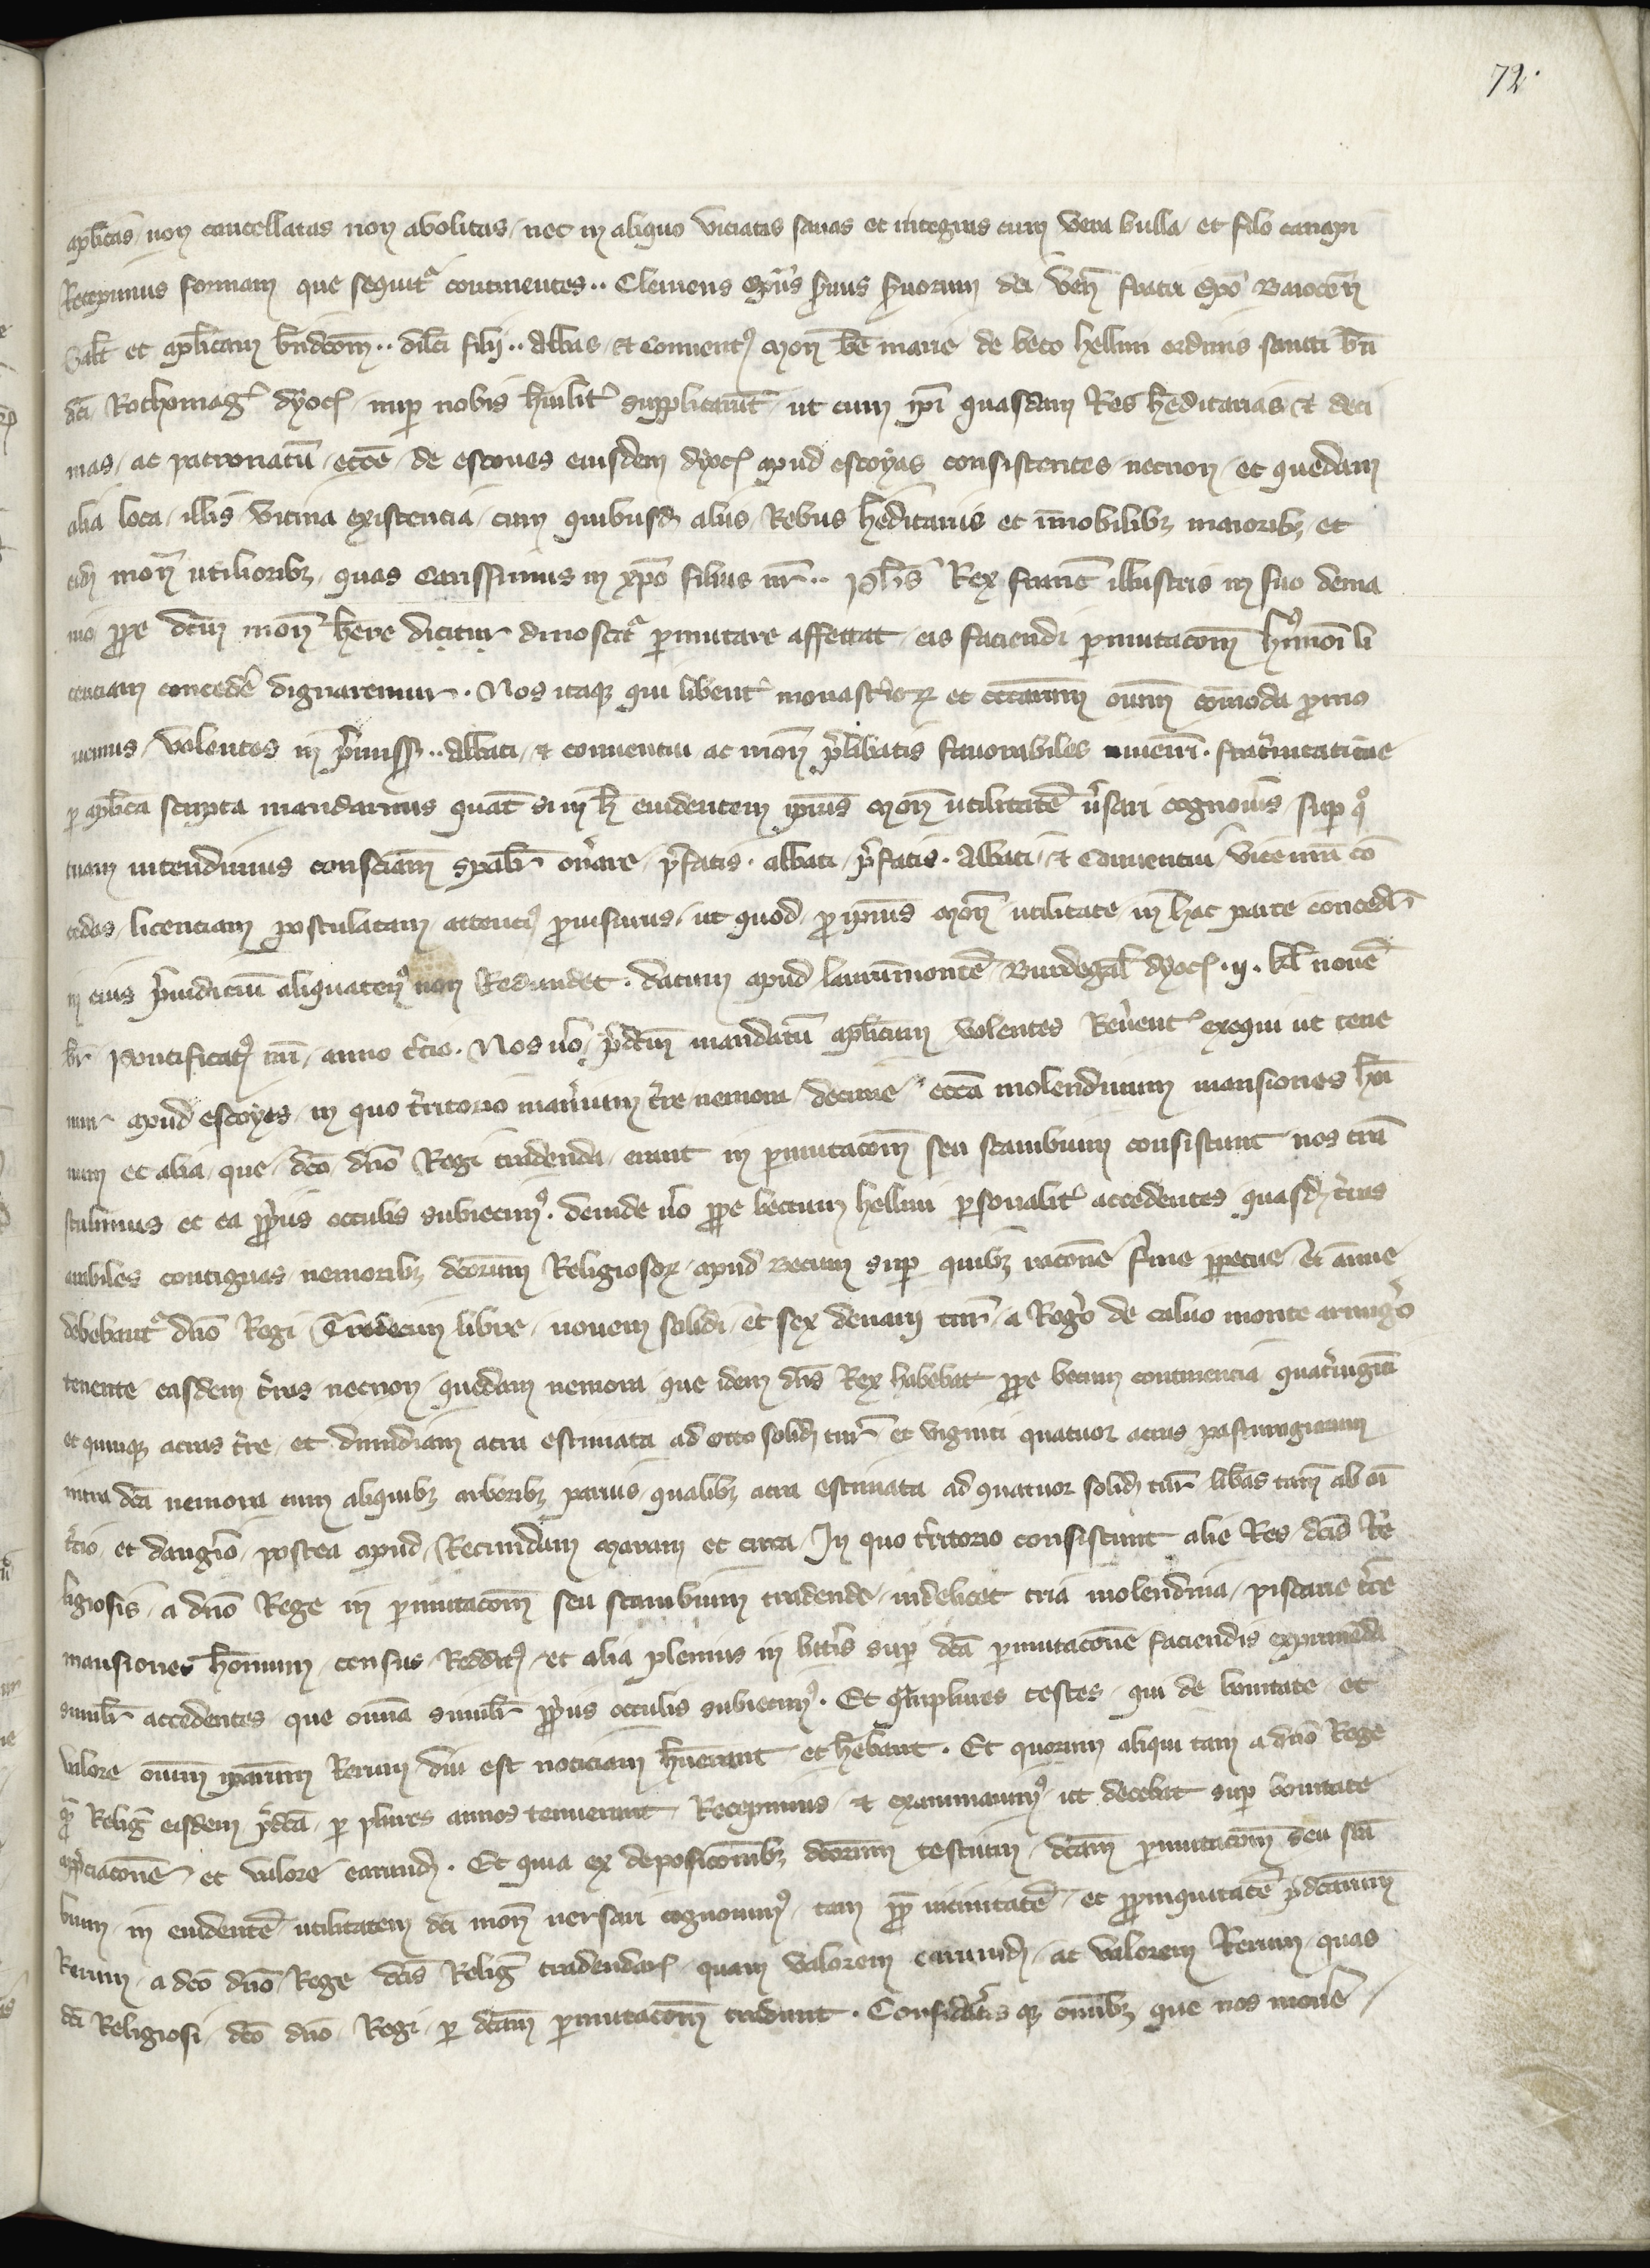 72.
aplicas / non cancellatas non abolitas / nec in aliquo viciatas sanas et integras cum vera bulla / et filo canapi
Recepimus formam que sequitr continentes .. Clemens eps seruus seruorum dei / ven fratri epo Baiocen
Salt et aplicam bndcom .. dilci filij .. Abbas / et Conuent9 mon be marie de becco hellini ordinis sancti bn
dci Rothomag dyoc / nup nobis humilit supplicarut / ut cum ipi quasdam Res heditarias et deci
mas / ac patronatu / eccie / de escoyes eiusdem dyoc apud escoyas consistentes / necnon / et quedam
alia loca / illis vicina existencia / cum quibusd aliis / Rebus heditariis et inmobilib maiorib / et
eid mon utiliorib / quas Carissimus in xpo filius nr .. Phs Rex franc illustris in suo dema
nio / ppe dcm mon here dicitur dinoscitr pmutare affectat / eis faciendi pmutacom hmoi li
cenciam concede dignaremur . Nos itaq qui libent monastior et eccarum oium comoda pmo
uemus / volentes in pmiss .. Abbati / et conuentui ac mon plibatis fauorabiles inueniri . frat̃nitati tue
p aplica scripta mandamus quat si in h euidentem ipius mon utilitate usari cognouis / sup q
tuam intendimus consciam spalr onare / pfatis . abbati / pfatis . Abbati / et Conuentui vice nra co
cedas / licenciam postulatam / attenci9 prouisurus / ut quod / p ipius mon utilitate / in hac parte conceder
in eius preiudiciu aliquaten9 non Redundet . datum apud lauru monte / Burdegal dyoc . ij . kl noue
br / Pontificat9 nri / anno tcio . Nos uo / pdcm mandatu aplicum volentes Reuent exequi ut tene
mur apud escoyes / in quo tritorio maniium tre nemora / decime / ecca molendinum mansiones hoi
num et alia / que / dco / dno Regi tradenda / erant in pmutacom seu scambium consistunt nos tran
stulimus et ea ppriis occulis subiecim9 . deinde uo ppe beccum hellini psonalit accedentes / quasd tras
arabiles contiguas / nemorib dcorum Religiosor / apud Beccum sup quib racone firme ppetue et annue
debebantr dno Regi Tredecim libre / nouem solidi / et sex denarii tur / a Rogo de caluo monte armigo
tenente / easdem tras necnon / quedam nemora que idem dns Rex habebat ppe beccum continencia quatringeti
et quinq acras tre / et dimidiam acra estimata ad octo solid tur et viginti quatuor acras pasturagiorum
intra dca nemora cum aliquib arborib paruis / qualib acra estimata ad quatuor solid tur libas tam ab oi
tcio / et daugio / postea apud / Recundam maram et circa / In quo tritorio consistunt alie Res / dcis Re
ligiosis / a dno Rege in pmutacom seu scambium tradende / uidelicet tria molendina / piscarie tre
mansiones hominum / census / Reddit9 / et alia plenius in littis sup dca pmutacone faciendis expmeda
similr accedentes / que omia similr ppriis occulis subiecim9 . Et quiplures testes / qui de bonitate / et
valore oium ipsarum Rerum / diu est noticiam huerant / et hebant . Et quorum aliqui tam a dno Rege
q Relig eisdem pdca / p plures annos tenuerant / Recepimus / et examinauim9 / ut decebat sup bonitate
appciacone / et valore earund . Et quia ex deposiconib dcorum testium / dcam pmutacom seu sca
bium / in euidente utilitatem dci mon uersari cognouim9 / tam pp uicinitate / et ppinquitate pdcarum
Rerum / a dco dno Rege dcis Relig tradendar quam valorem earumd / ac valorem Rerum / quas
dci Religiosi / dco dno / Regi / p dcam pmutacom tradunt . Consideratis q omib que nos moue /